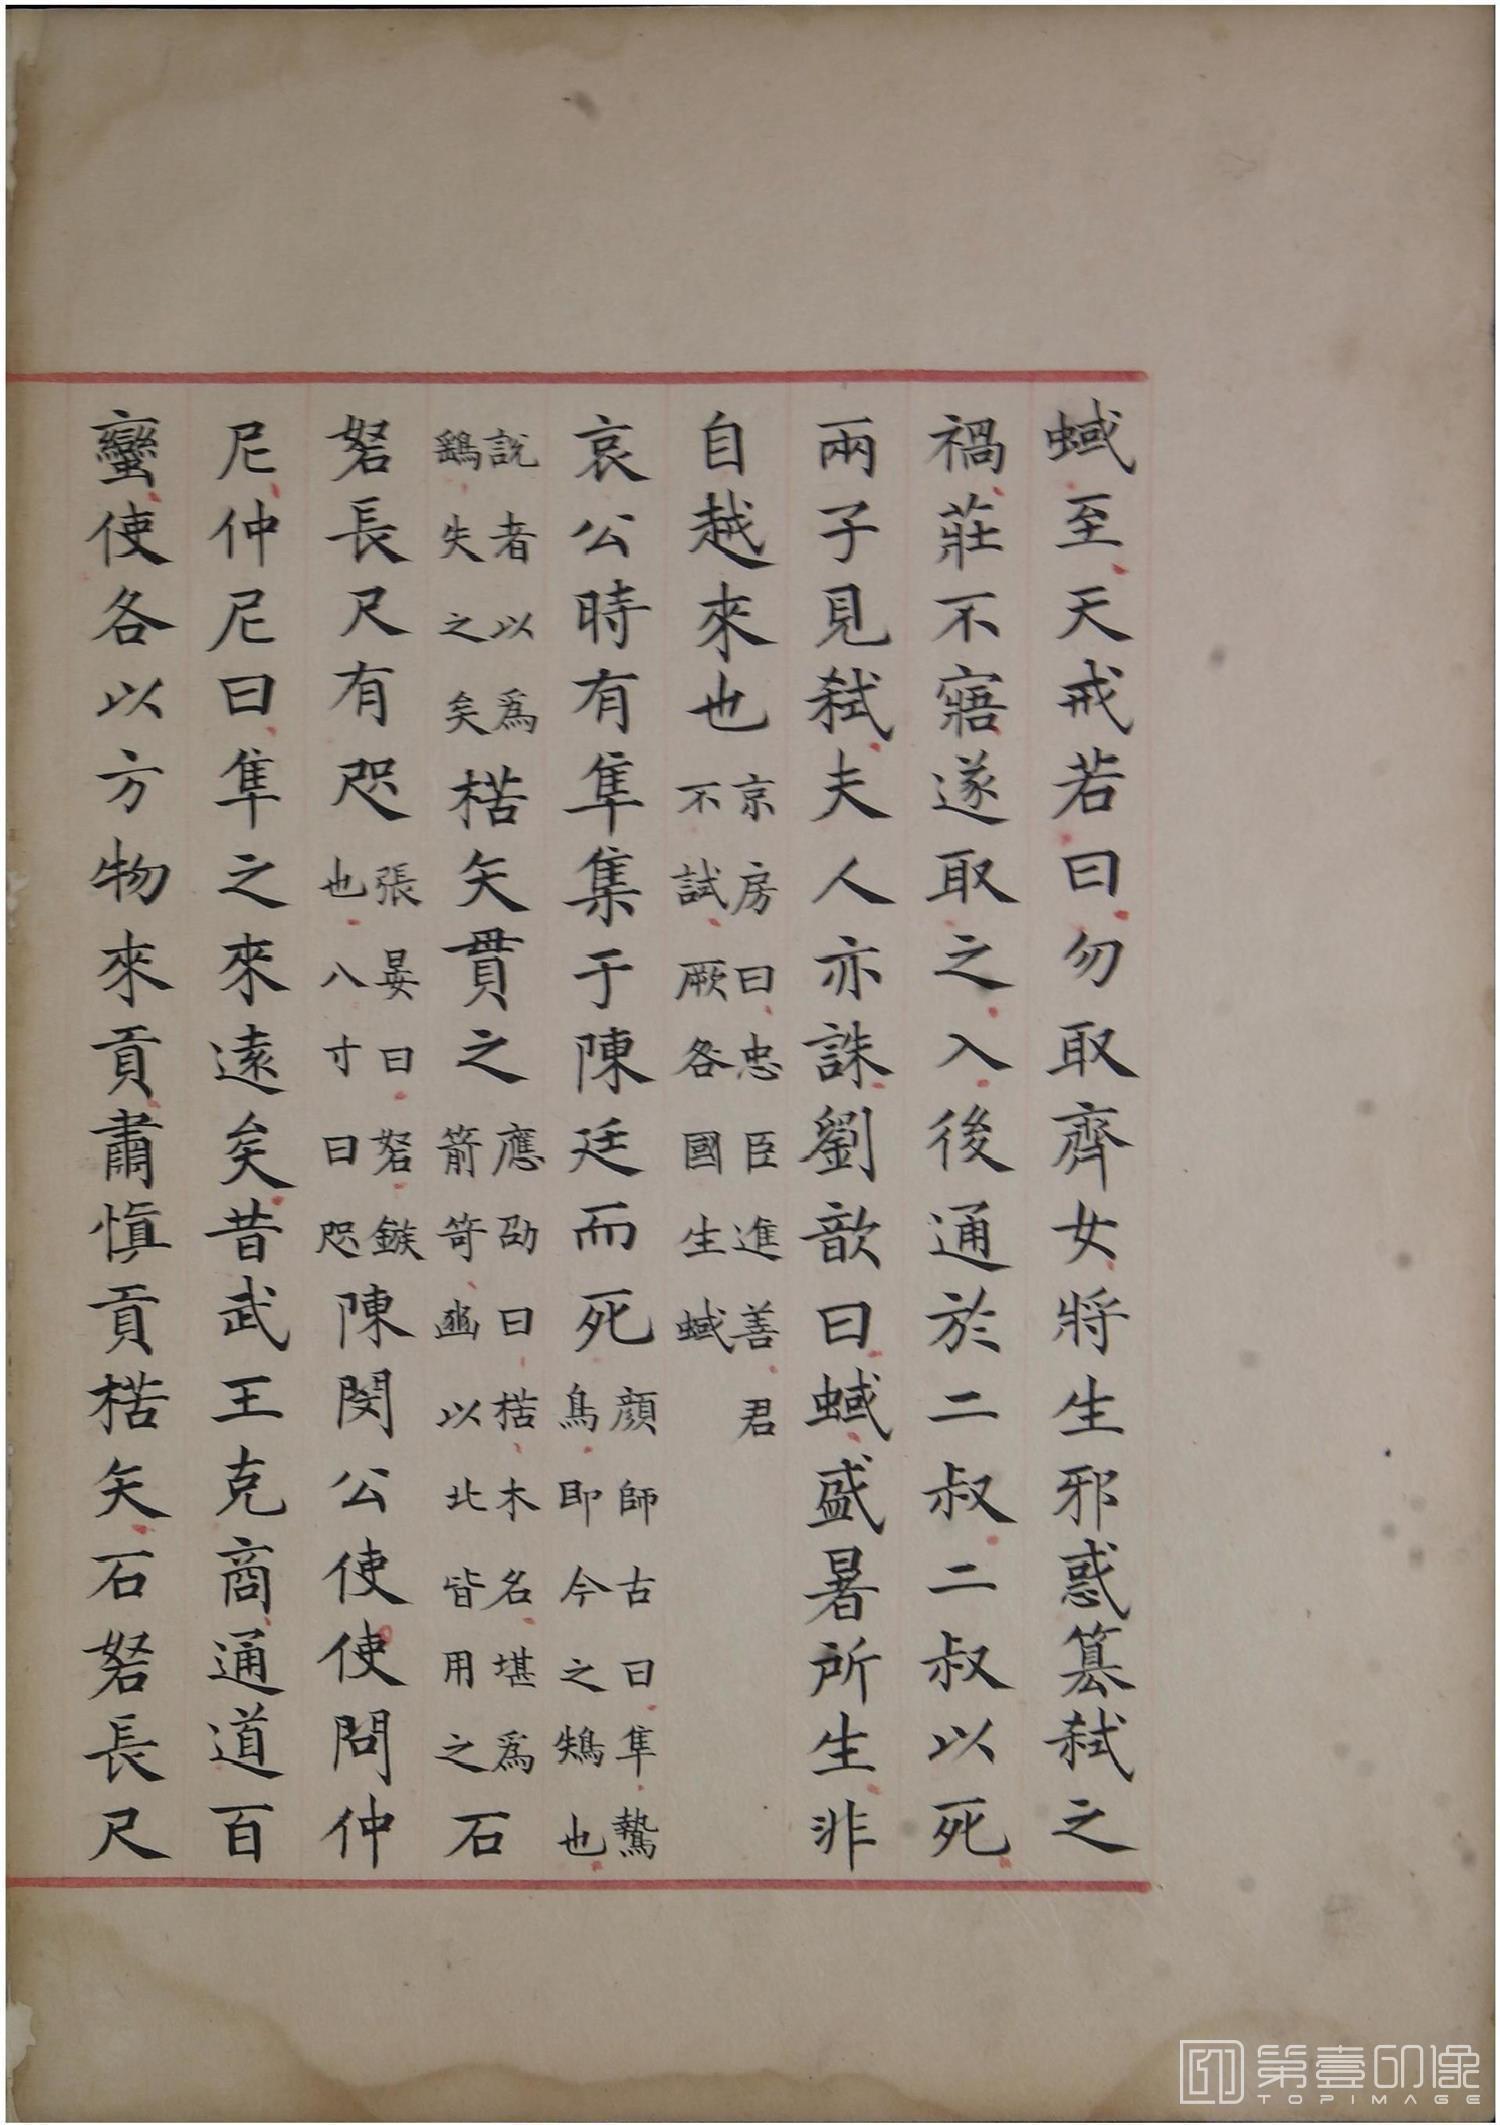 蜮至天戒若曰勿取齊女將生邪惑篡弒之
禍莊不寤遂取之入後通於二叔二叔以死
兩子見弒夫人亦誅劉歆曰蜮盛暑所生非
自越來也京房曰忠臣進善君不試厥咎國生蜮
哀公時有隼集于陳廷而死顏師古曰隼鷙鳥即今之鴩也
說者以爲鷂失之矣楛矢貫之應劭曰楛木名堪爲箭笴幽以北皆用之石
砮長尺有咫張晏曰砮鏃也八寸曰咫陳閔公使使問仲
尼仲尼曰隼之來遠矣昔武王克商通道百
蠻使各以方物來貢肅慎貢楛矢石砮長尺
第壹印像
TOPIMAGE